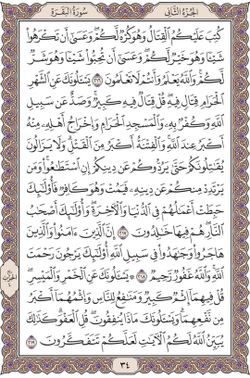 الجزء الثاني سورة البقرة
كُتِبَ عَلَيْكُمُ الْقِتَالُ وَهُوَ كُرْهٌ لَّكُمْ وَعَسَىٰ أَن تَكْرَهُوا
شَيْئًا وَهُوَ خَيْرٌ لَّكُمْ وَعَسَىٰ أَن تُحِبُّوا شَيْئًا وَهُوَ شَرٌّ
لَّكُمْ وَاللَّهُ يَعْلَمُ وَأَنتُمْ لَا تَعْلَمُونَ ٢١٦ يَسْأَلُونَكَ عَنِ الشَّهْرِ
الْحَرَامِ قِتَالٍ فِيهِ قُلْ قِتَالٌ فِيهِ كَبِيرٌ وَصَدٌّ عَن سَبِيلِ
اللَّهِ وَكُفْرٌ بِهِ وَالْمَسْجِدِ الْحَرَامِ وَإِخْرَاجُ أَهْلِهِ مِنْهُ
أَكْبَرُ عِندَ اللَّهِ وَالْفِتْنَةُ أَكْبَرُ مِنَ الْقَتْلِ وَلَا يَزَالُونَ
يُقَاتِلُونَكُمْ حَتَّىٰ يَرُدُّوكُمْ عَن دِينِكُمْ إِنِ اسْتَطَاعُوا وَمَن
يَرْتَدِدْ مِنكُمْ عَن دِينِهِ فَيَمُتْ وَهُوَ كَافِرٌ فَأُولَٰئِكَ
حَبِطَتْ أَعْمَالُهُمْ فِي الدُّنْيَا وَالْآخِرَةِ وَأُولَٰئِكَ أَصْحَابُ
النَّارِ هُمْ فِيهَا خَالِدُونَ ٢١٧ إِنَّ الَّذِينَ آمَنُوا وَالَّذِينَ
هَاجَرُوا وَجَاهَدُوا فِي سَبِيلِ اللَّهِ أُولَٰئِكَ يَرْجُونَ رَحْمَتَ
اللَّهِ وَاللَّهُ غَفُورٌ رَّحِيمٌ ٢١٨ يَسْأَلُونَكَ عَنِ الْخَمْرِ وَالْمَيْسِرِ
قُلْ فِيهِمَا إِثْمٌ كَبِيرٌ وَمَنَافِعُ لِلنَّاسِ وَإِثْمُهُمَا أَكْبَرُ
مِن نَّفْعِهِمَا وَيَسْأَلُونَكَ مَاذَا يُنفِقُونَ قُلِ الْعَفْوَ كَذَٰلِكَ
يُبَيِّنُ اللَّهُ لَكُمُ الْآيَاتِ لَعَلَّكُمْ تَتَفَكَّرُونَ ٢١٩
٣٤